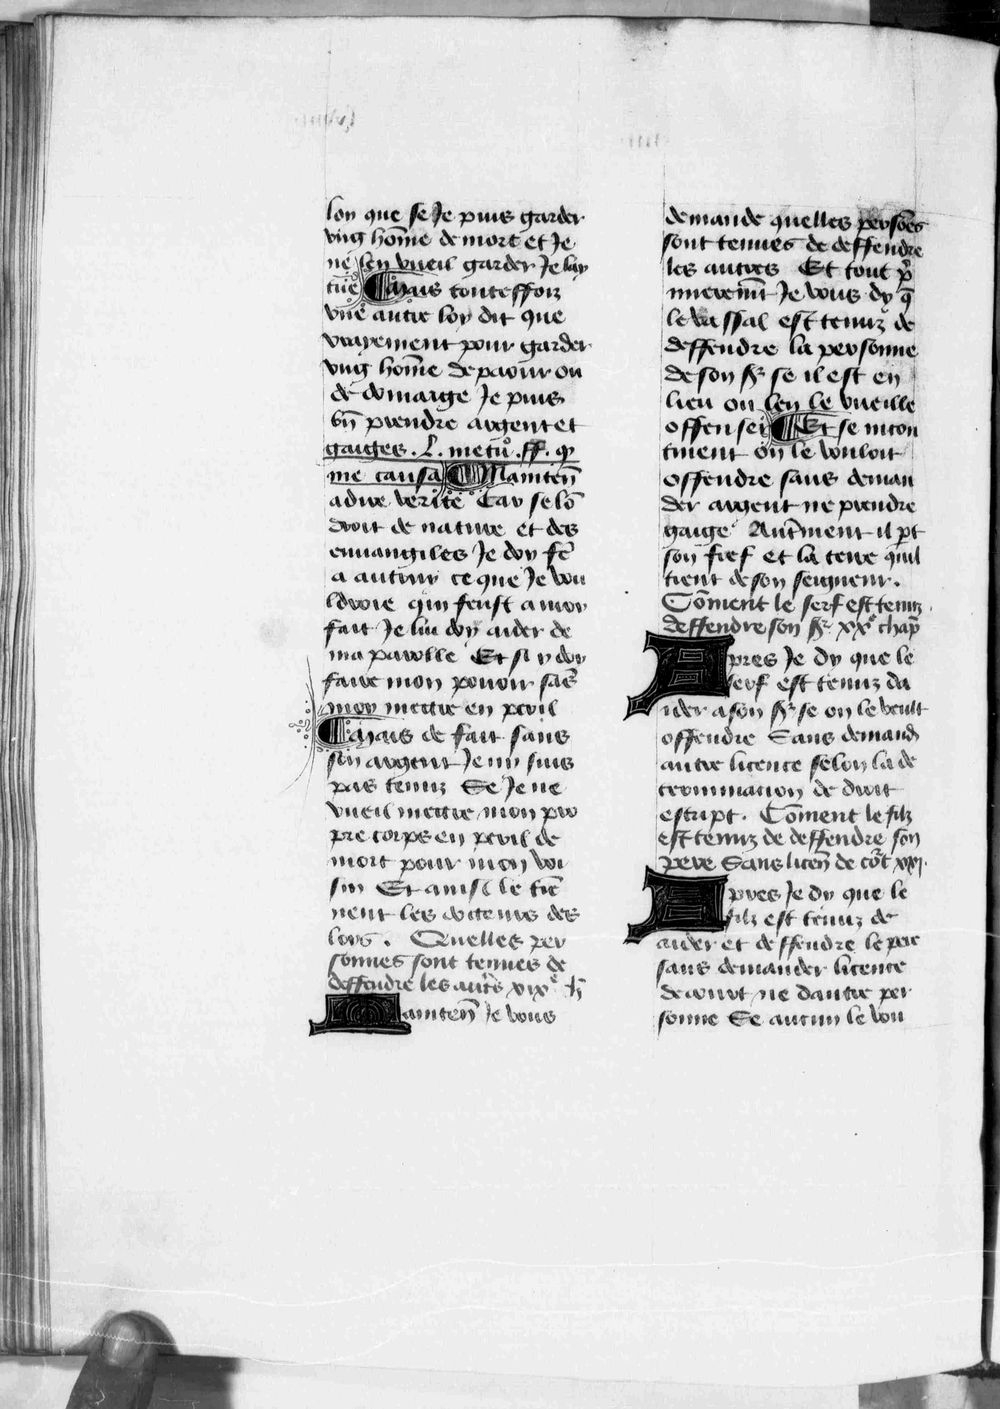 loy que se Je puis garder
vng hōme de mort et Je
ne len vueil garder Je lay
tue Mais touteffoiz
vne autre loy dit que
vrayement pour garder
vng hōme de paour ou
de domaige Je puis
bn̄ prendre argent et
gaiges . L . metū . ff . qͥ
me causa Mainten̄
a dire verite Car selō
droit de nature et des
euuangiles Je doy fē
a autruy ce que Je vou
ldroie quil feust a moy
fait Je lui doy aider de
ma parolle Et si y doy
faire mon pouoir sās
moy mettre en peril
Mais de fait sans
son argent Je ny suis
pas tenuz Se Je ne
vueil mettre mon pro
pre corps en peril de
mort pour mon voi
sin Et ainsi le tiē
nent les docteurs des
loys . Quelles per
sonnes sont tenues de
deffendre les aut̄s xixᵉ cħ
Mainten̄ Je vous
demande quelles persōes
sont tenues de deffendre
les autres Et tout p̄
mieremt̄ Je vous dy q̄
le vassal est tenuz de
deffendre la personne
de son sʳ se il est en
lieu ou len le vueille
offenser Et se incon
tinent on le vouloit
offendre sans deman
der argent ne prendre
gaige Aut̄ment il pt
son fief et la terre quil
tient de son seigneur .
Cōment le serf est tenuz
deffendre son sʳ xxᵉ chap̄
Apres Je dy que le
serf est tenuz da
ider a son sʳ se on le veult
offendre Sans demand̄
autre licence selon la de
terminacion de droit
escript . Cōment le filz
est tenuz de deffendre son
pere Sans licen̄ de cōt xxi .
Apres Je dy que le
filz est tenuz de
aider et deffendre le pere
sans demander licence
de court ne dautre per
sonne Se aucun le vou